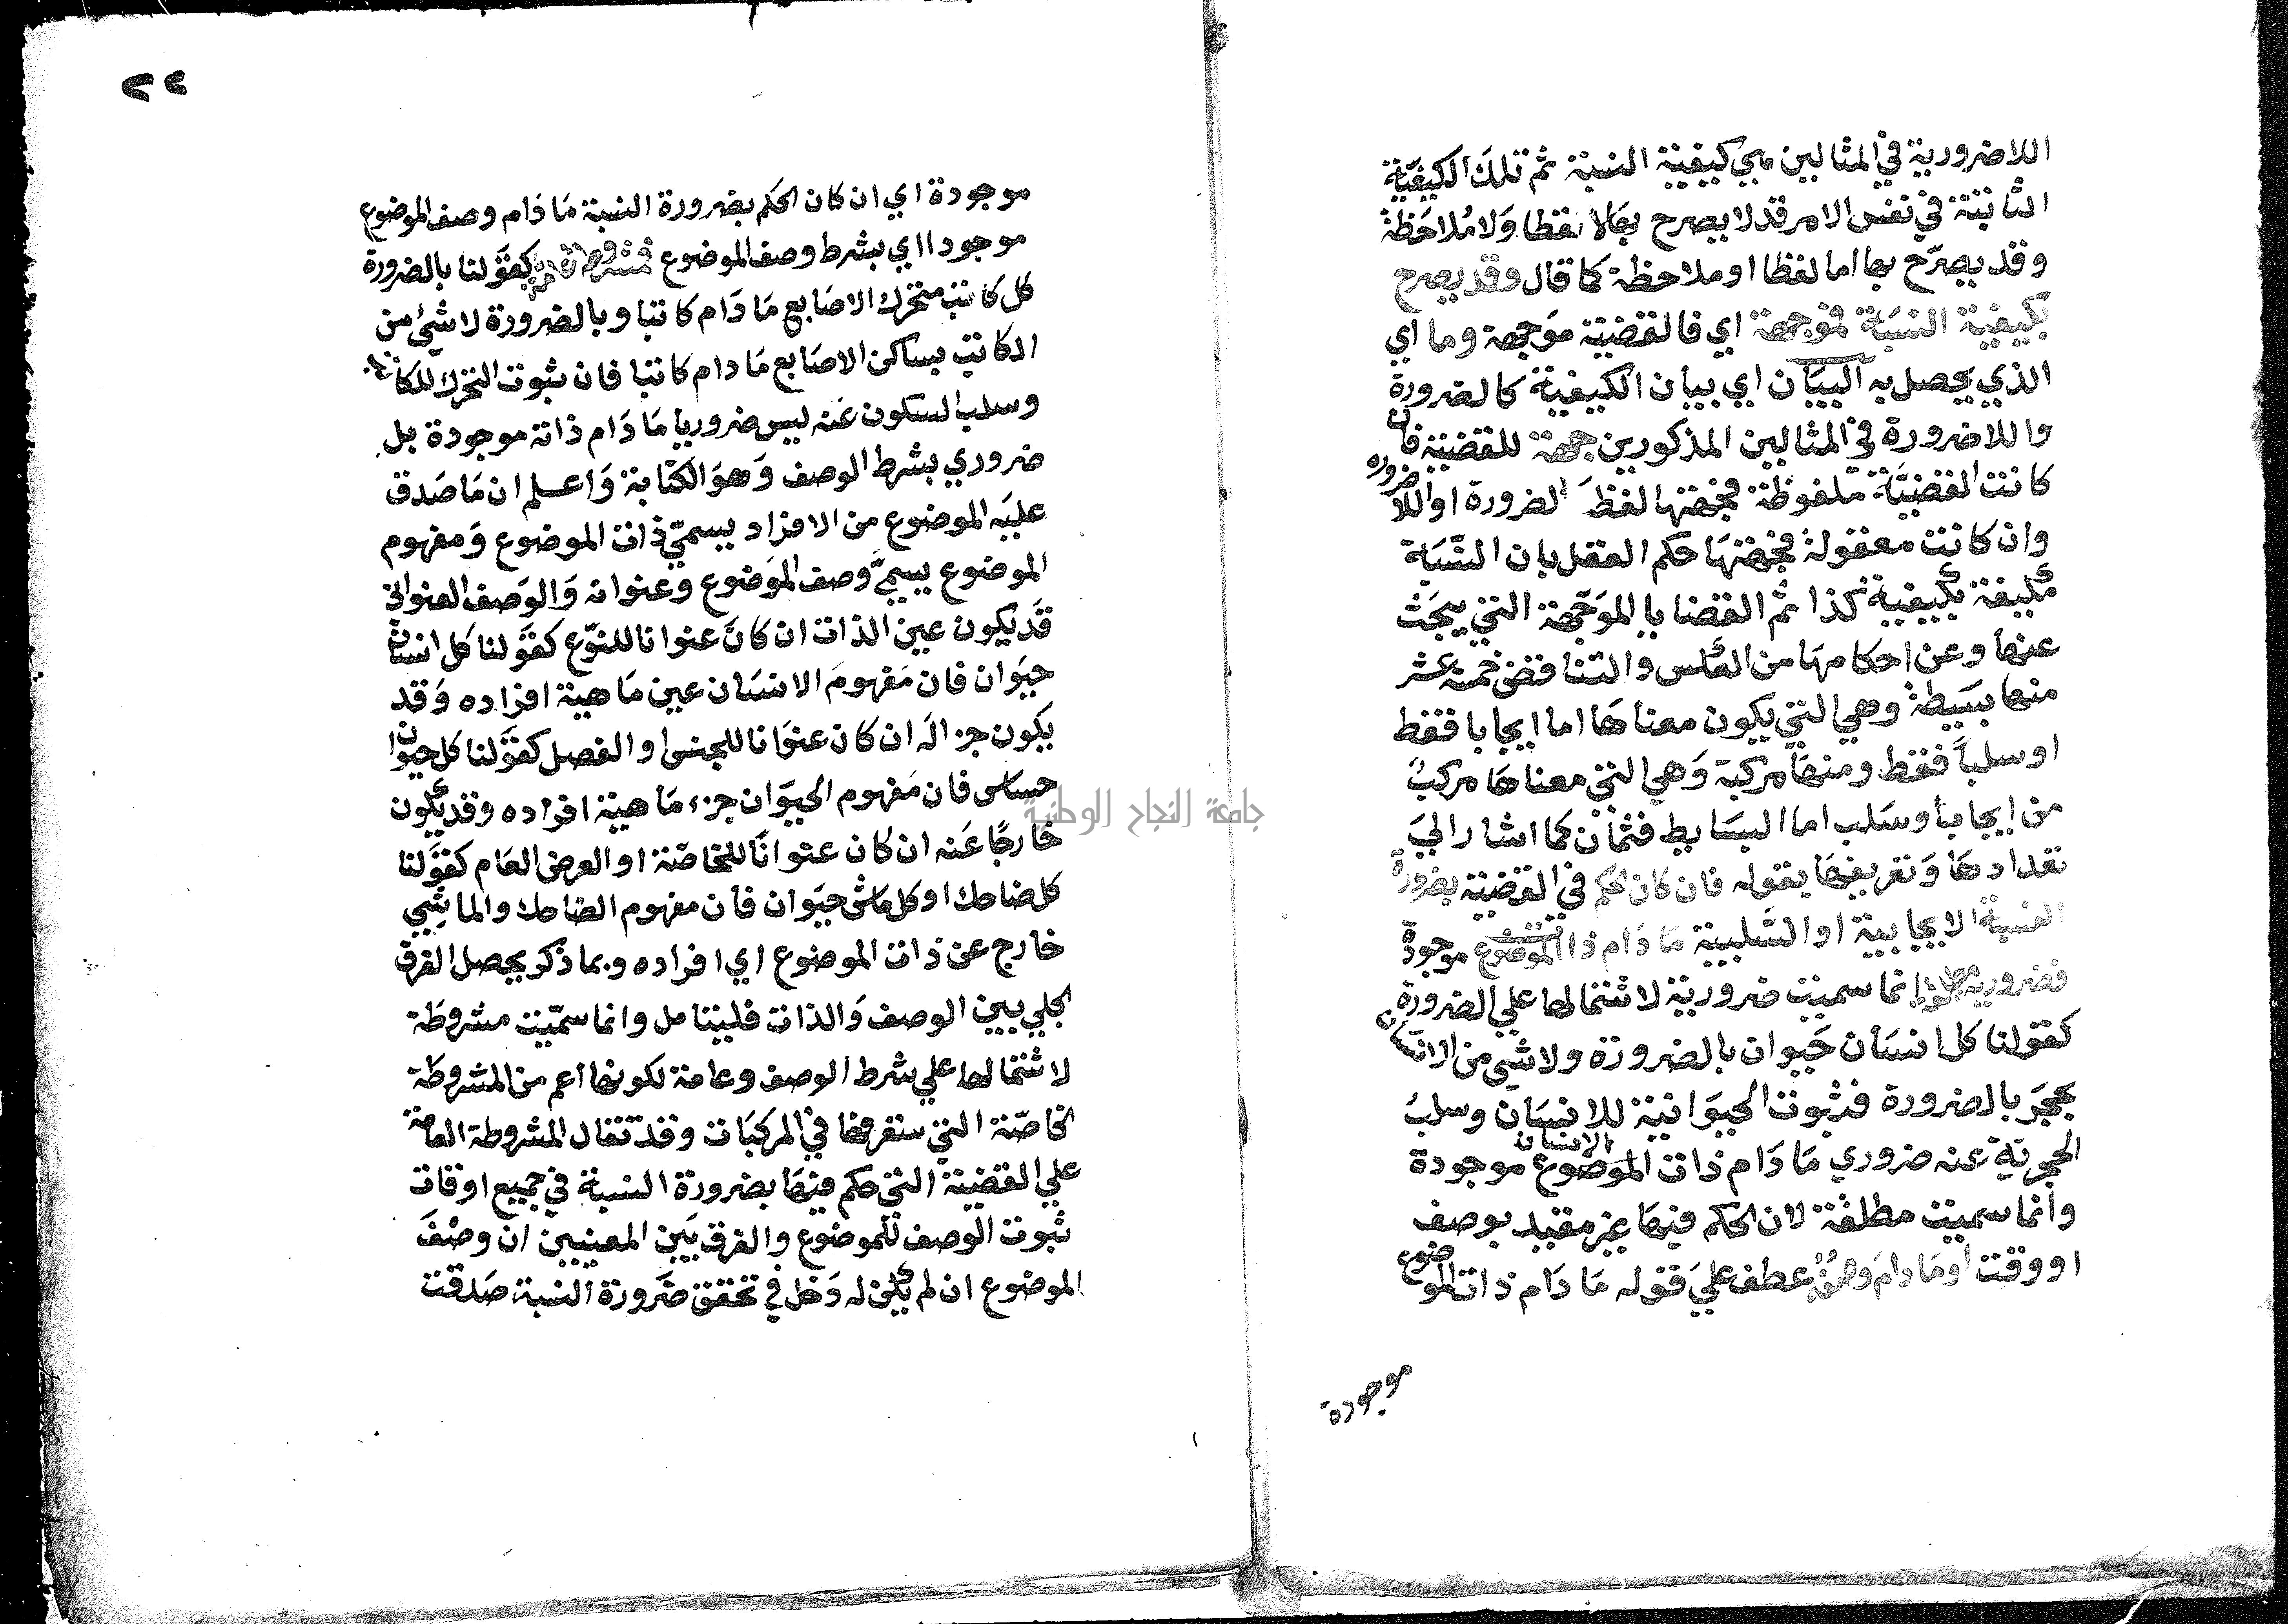 اللاضرورية في المثالين هي كيفية النسبة ثم تلك الكيفيّة
الثابتة في نفس الامر قد لا يصرح بها لا لفظا وَلا مُلاحَظة
وقد يصرّح بها اما لفظا او ملاحظة كما قال وقد يصرح
بكيفية النسبَة فموجهة اي فالقضية موَجهة وما اي
الذي يحصل به البيَان اي بيان الكيفية كالضرورة
واللاضرورة في المثالين المذكورين جهة للقضية فان
كانت القضيَّة ملفوظة فجهتها لفظَ الضرورة او اللاضروره
وان كانت معقولة فجهتهَا حكم العقل بان النّسَبة
مكيفة بكيفية كذا ثم القضايا الموَجّهة التي يبحَث
عنها وعن احكامهَا من العكس والتناقض خمسة عشر
منها بسَيطة وهي التي يكون معناهَا اما ايجابا فقط
او سلباً فقط ومنهَا مركبة وَهي التي معناهَا مركبُ
من ايجاب وسَلب اما البسَايط فثمان كما اشار اليَ
تعدادهَا وَتعريفهَا بقوله فان كان الحكم في القضية بضرورة
النسبة الايجابية او السَّلبية مَا دَام ذات الموضوع موجودة
فضرورية مطلقة انما سميت ضرورية لاشتمالها علي الضرورة
كقولنا كل انسَان حَيوان بالضرورة ولا شيء من الانسان
بحجَر بالضرورة فثبوت الحيوَانية للانسَان وسلبُ
الحجرية عنه ضروري مَا دَام ذات الموَضوع الانسان موجودة
وانما سميت مطلقة لان الحكم فيهَا غير مقيد بوصف
او وقت او مَا دامَ وصفُهُ عطف عليَ قوله مَا دَام ذات الموضوع
موجودة
٢٢
موجودة اي ان كان الحكم بضرورة النسبة مَا دَام وصف الموضوع
موجودا اي بشرط وصف الموضوع فمشروطة عامة كقوَلنا بالضرورة
كل كاتب متحرك الاصَابع مَا دَام كاتبا وبالضرورة لا شيْ من
الكاتب بساكن الاصَابع مَا دام كاتبا فان ثبوت التحرك للكاتب
وسلب السكون عَنه ليس ضروريا مَا دَام ذاته موجودة بل
ضروري بشرط الوصف وَهوَ الكتابة وَاعلم ان مَا صَدق
عليَه الموضوع من الافراد يسميّ ذات الموضوع وَمفهوم
الموضوع يسميَّ وصف الموَضوع وعنوانه وَالوَصف العنواني
قَد يكون عين الذات ان كانَ عنوانا للنوّع كقوَلنا كل انسان
حيَوان فان مَفهومَ الانسَان عين مَاهية افراده وَقد
يكون جزءا لَه ان كان عنوَانا للجنس او الفصل كقوَلنا كل حيوان
حساس فان مَفهوم الحيوَان جزء مَاهية افراده وقد يكون
خارجًا عَنه ان كان عنوانًا للخاصّة او العرض العَام كقوَلنا
كل ضاحك او كل ماش حيَوان فان مفهوم الضاحك والماشيِ
خارج عن ذات الموضوع اي افراده وبما ذكر يحصل الفرق
الجلي بين الوصف وَالذات فليتامل وانما سمّيت مشروطَة
لاشتمالها علي شرط الوصف وعامة لكونها اعم من المشروطَة
الخاصّة التي ستعرفها في المركبَات وقد تقال المشروطة العامة
علي القضية التي حكم فيهَا بضرورة النسبة في جميع اوقات
ثبوت الوصف للموضوع والفرق بَين المعنيين ان وصْفَ
الموضوع ان لم يكن له دَخل في تحقق ضَرورة النسبة صَدقت
جامعة النجاح الوطنية